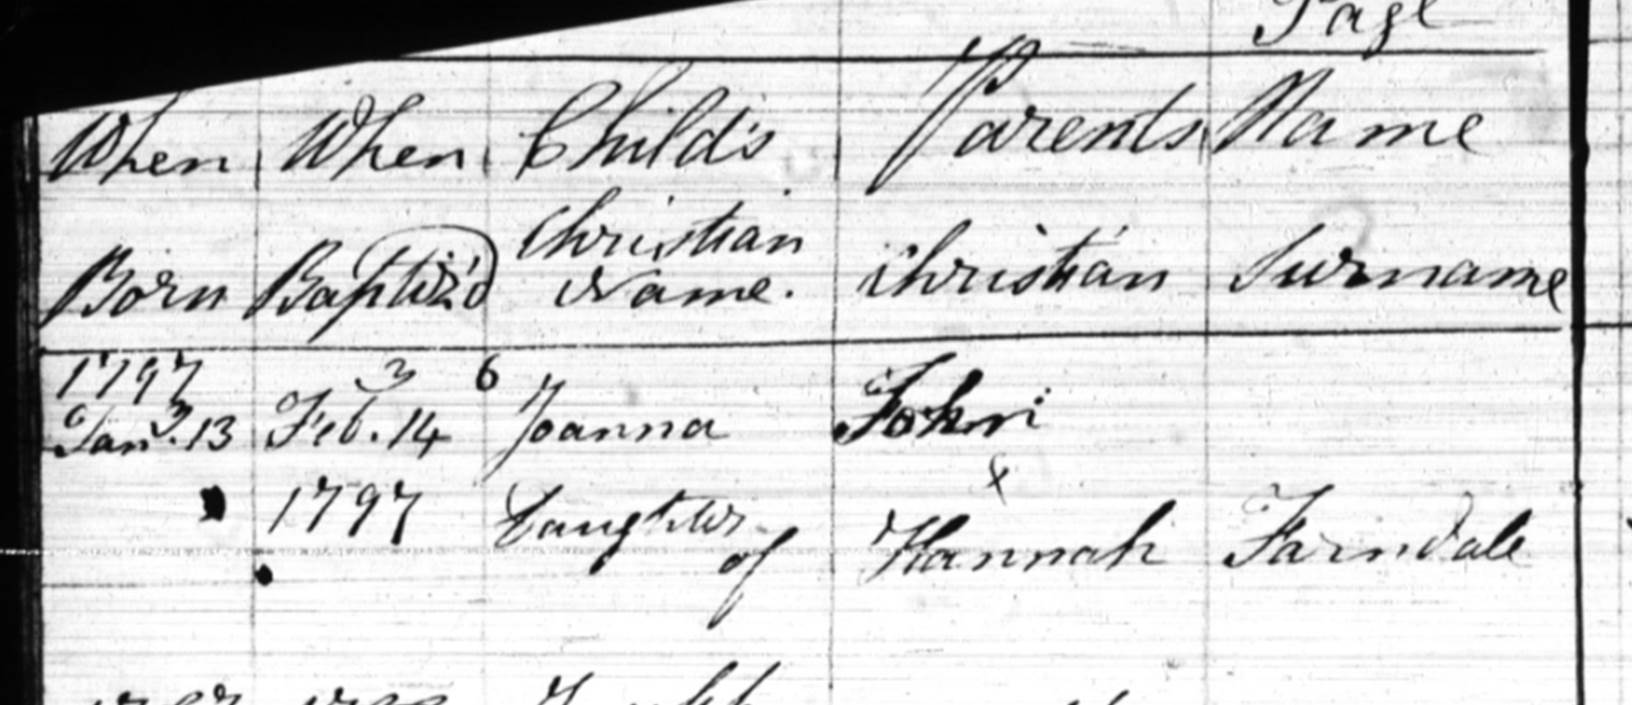 Page
When When Child's Parents Name
Christian
Born Baptiz'd Name. Christian Surname
1797 3 6
Jany. 13 Feb. 14 Joanna John
&
1797 Daughter
of Hannah Farndale